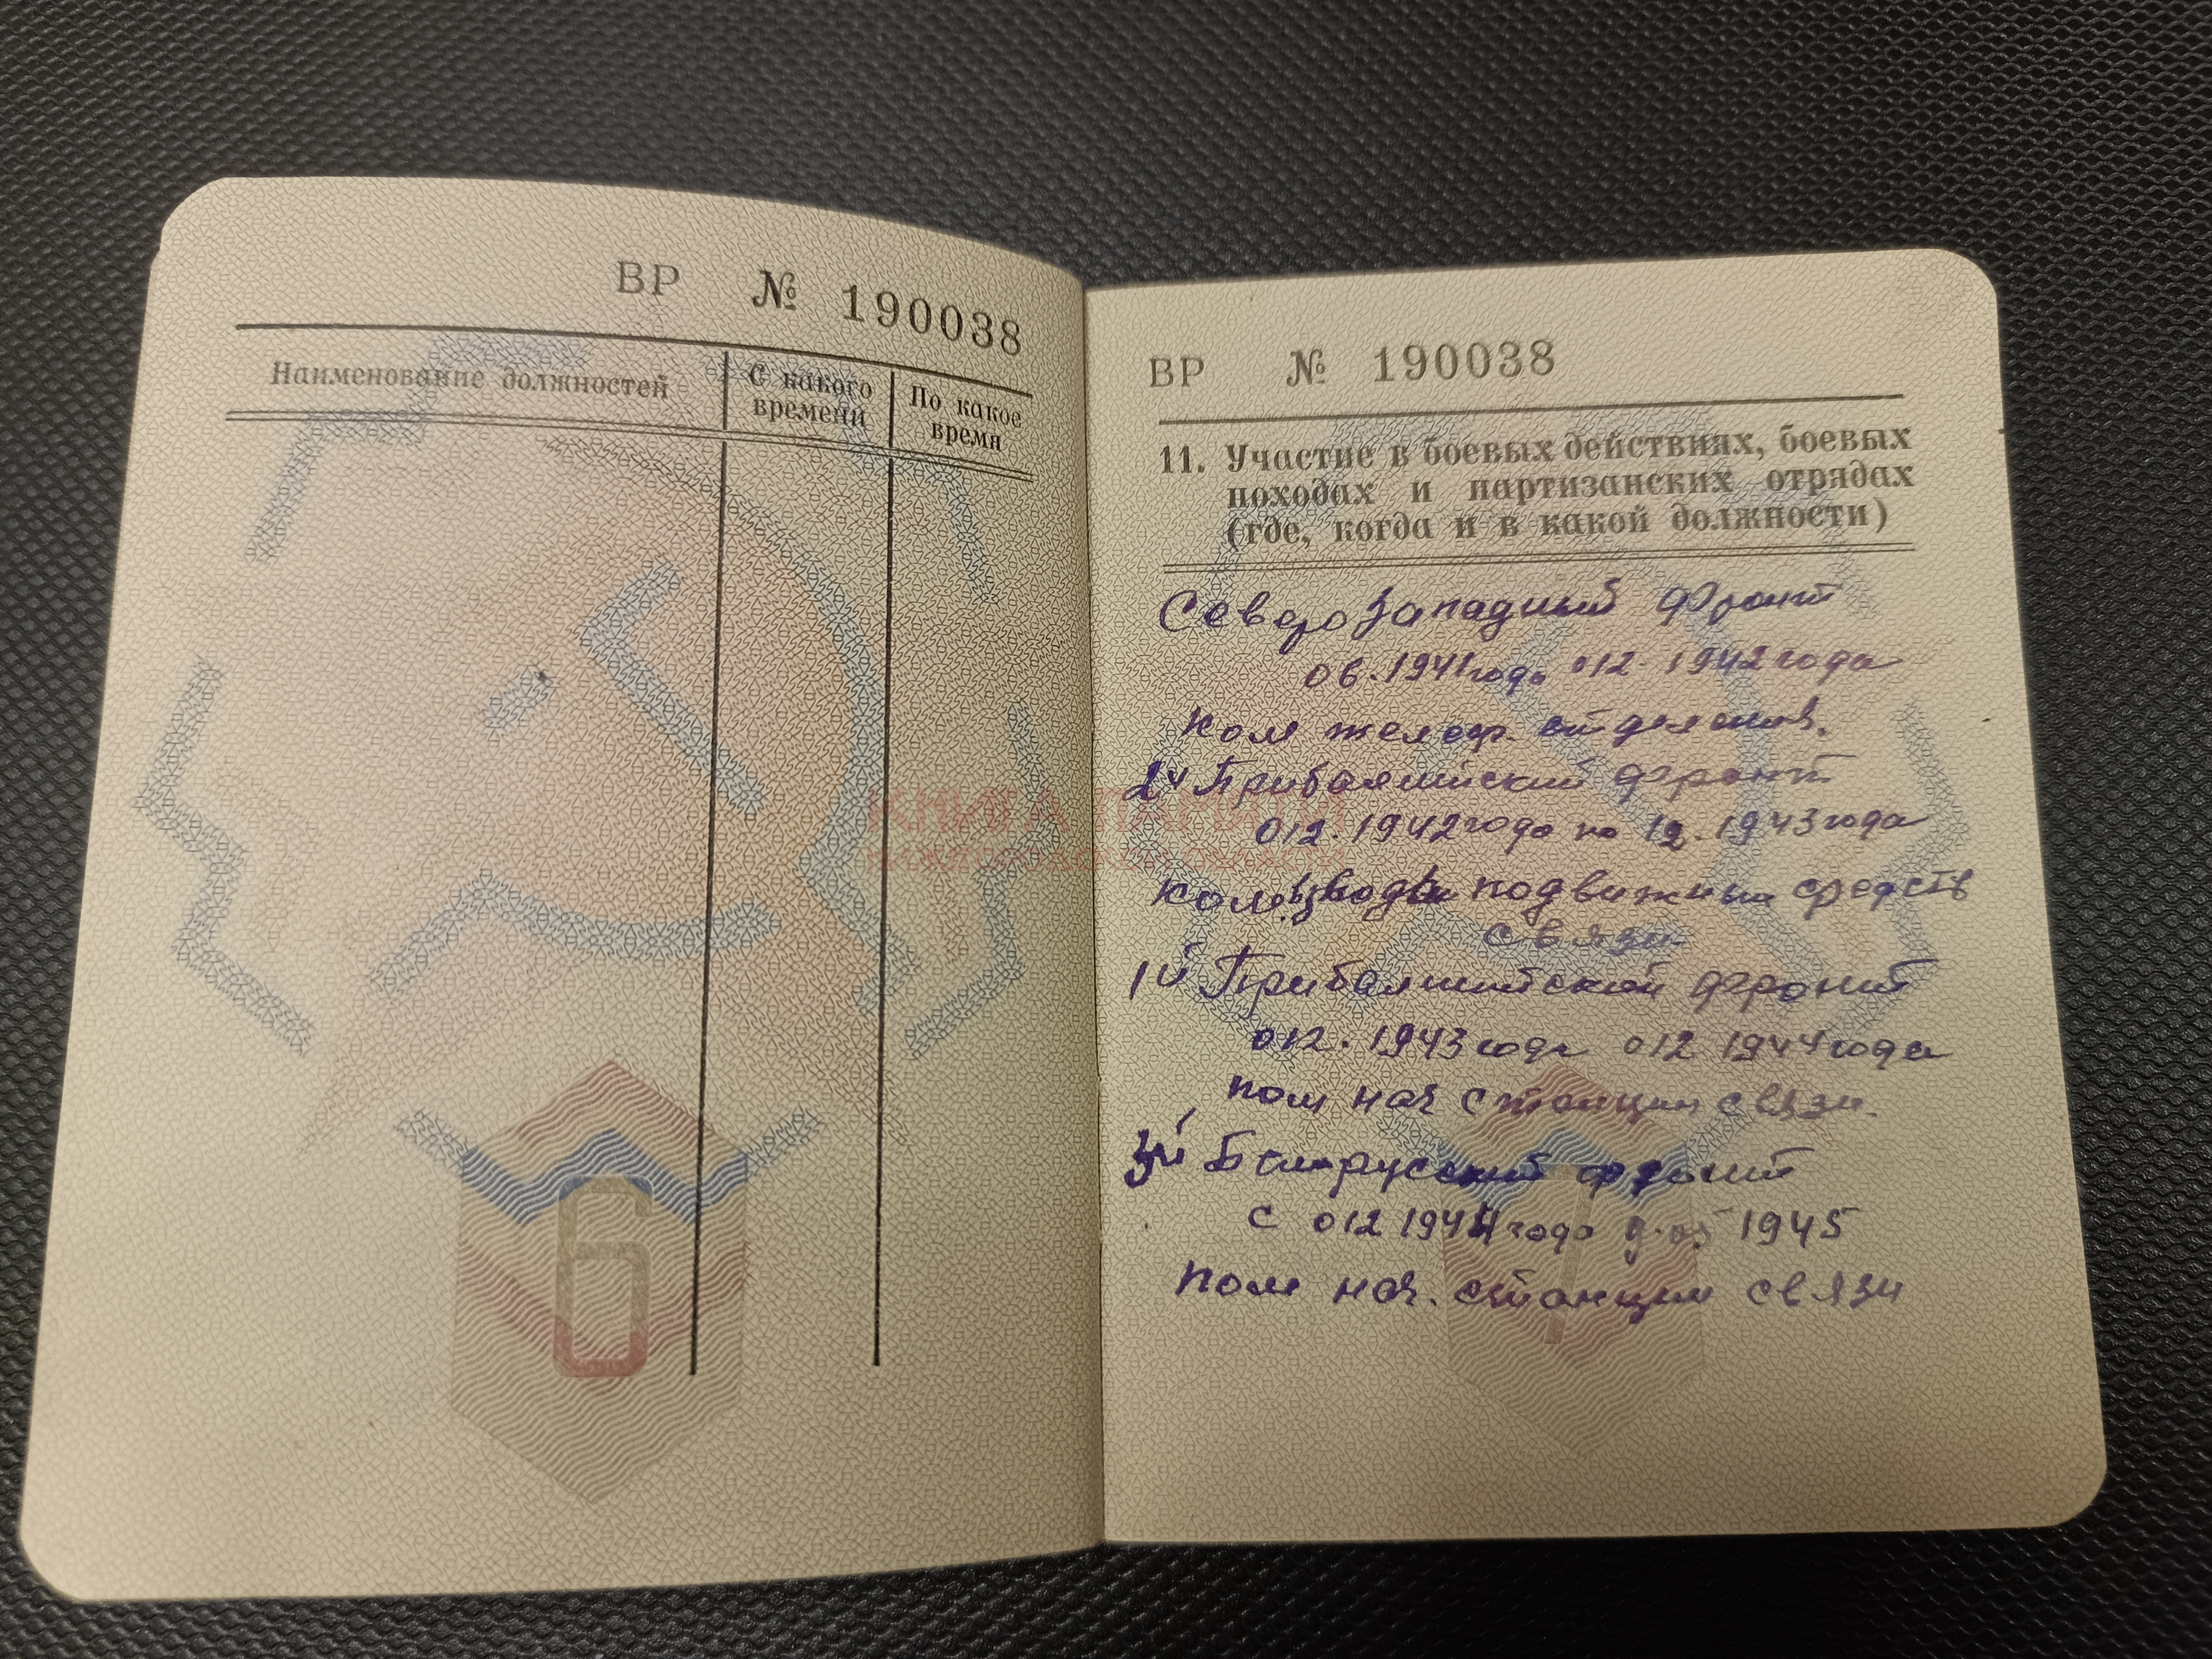 ВР № 190038
Наименование должностей
С какого времени
По какое время
6
ВР № 190038
11. Участие в боевых действиях, боевых
походах и партизанских отрядах
(где, когда и в какой должности)
Северо Западный фронт
06.1941 года 012.1942 года
Ком отделения.
2й Прибалтийский фронт
012.1942 года по 12.1943 года
Ком взвода подвижных средств
связи
1й Прибалтийский фронт
012.1943 года 012 1944 года
пом нач станции связи.
3й Белорусский фронт
с 012 1944 года 9.05 1945
пом нач. станции связи
7
КНИГА ПАМЯТИ